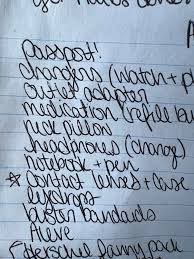 Passport!
chargers (watch + p
outlet adapter
medication (refill bu
neck pillow
headphones (charge)
notebook + pen
* contact lenses + case
eyedrops
blister bandaids
Aleve
Herschel fanny pack